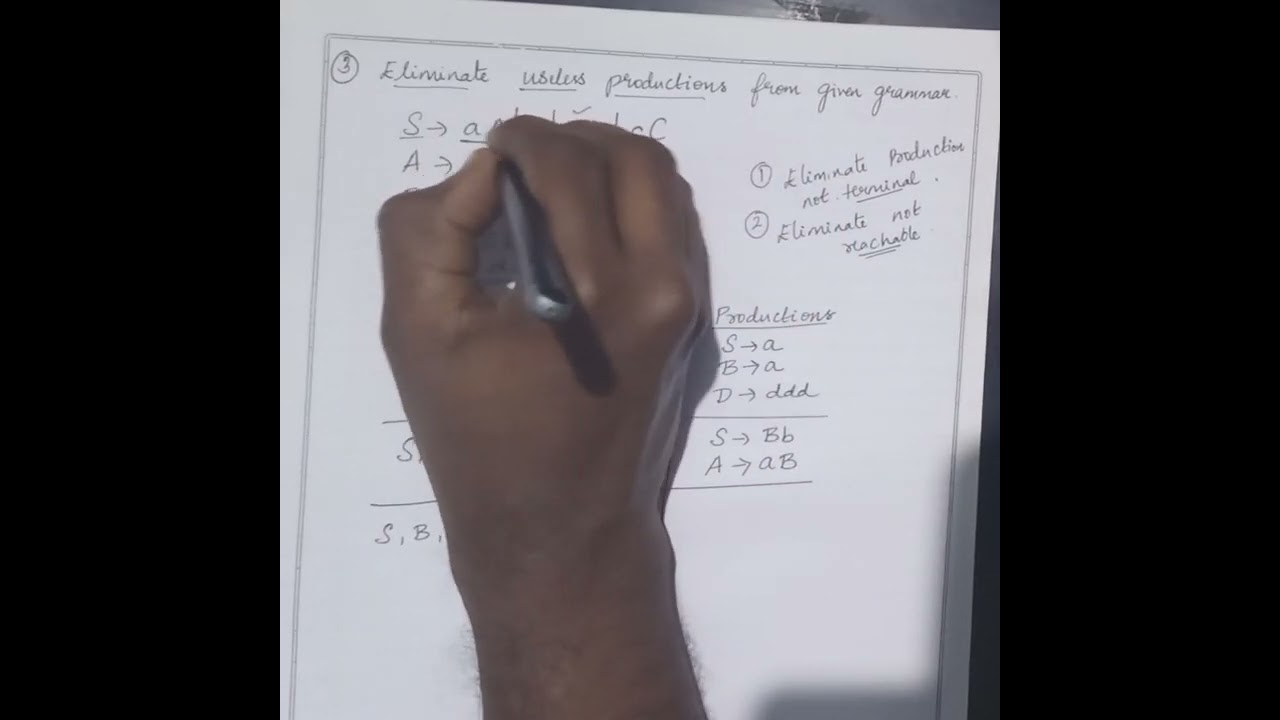 ③ Eliminate useless productions from given grammar.
S → a
aC
A →
① Eliminate Production
not terminal.
② Eliminate not
reachable
Productions
S → a
B → a
D → ddd
S → Bb
A → aB
S, B,